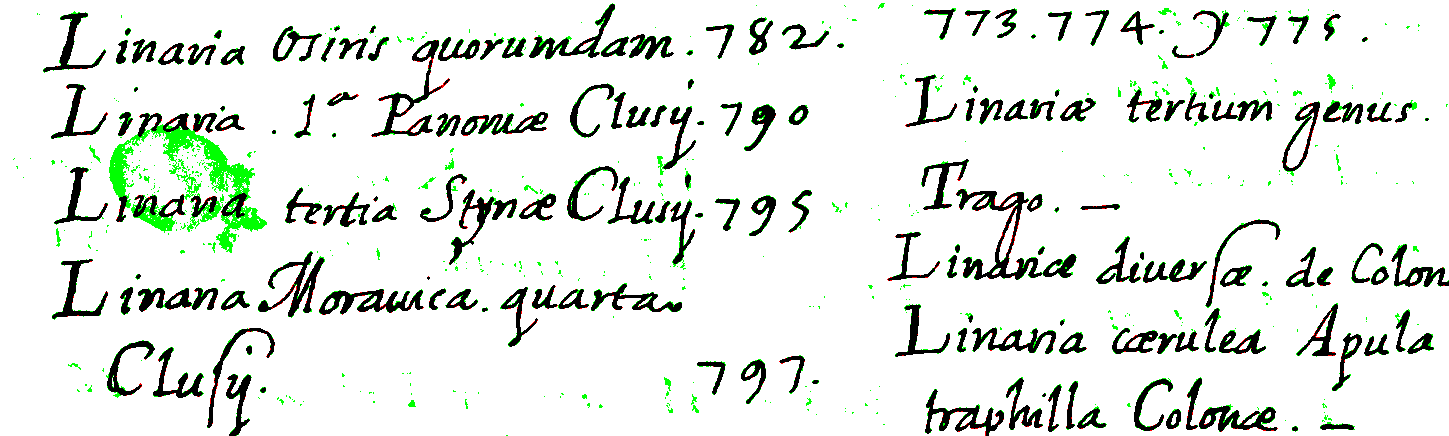 Linaria Osiris quorumdam. 782.
Linaria. 1.ª Panoniæ Clusij. 790
Linaria tertia Styriæ Clusij. 795
Linaria Morauica. quarta.
Cluſij. 797.
773. 774. & 775.
Linariæ tertium genus.
Trago. —
Linariæ diuerſæ. de Colon
Linaria cærulea Apula
traphilla Colonæ. —